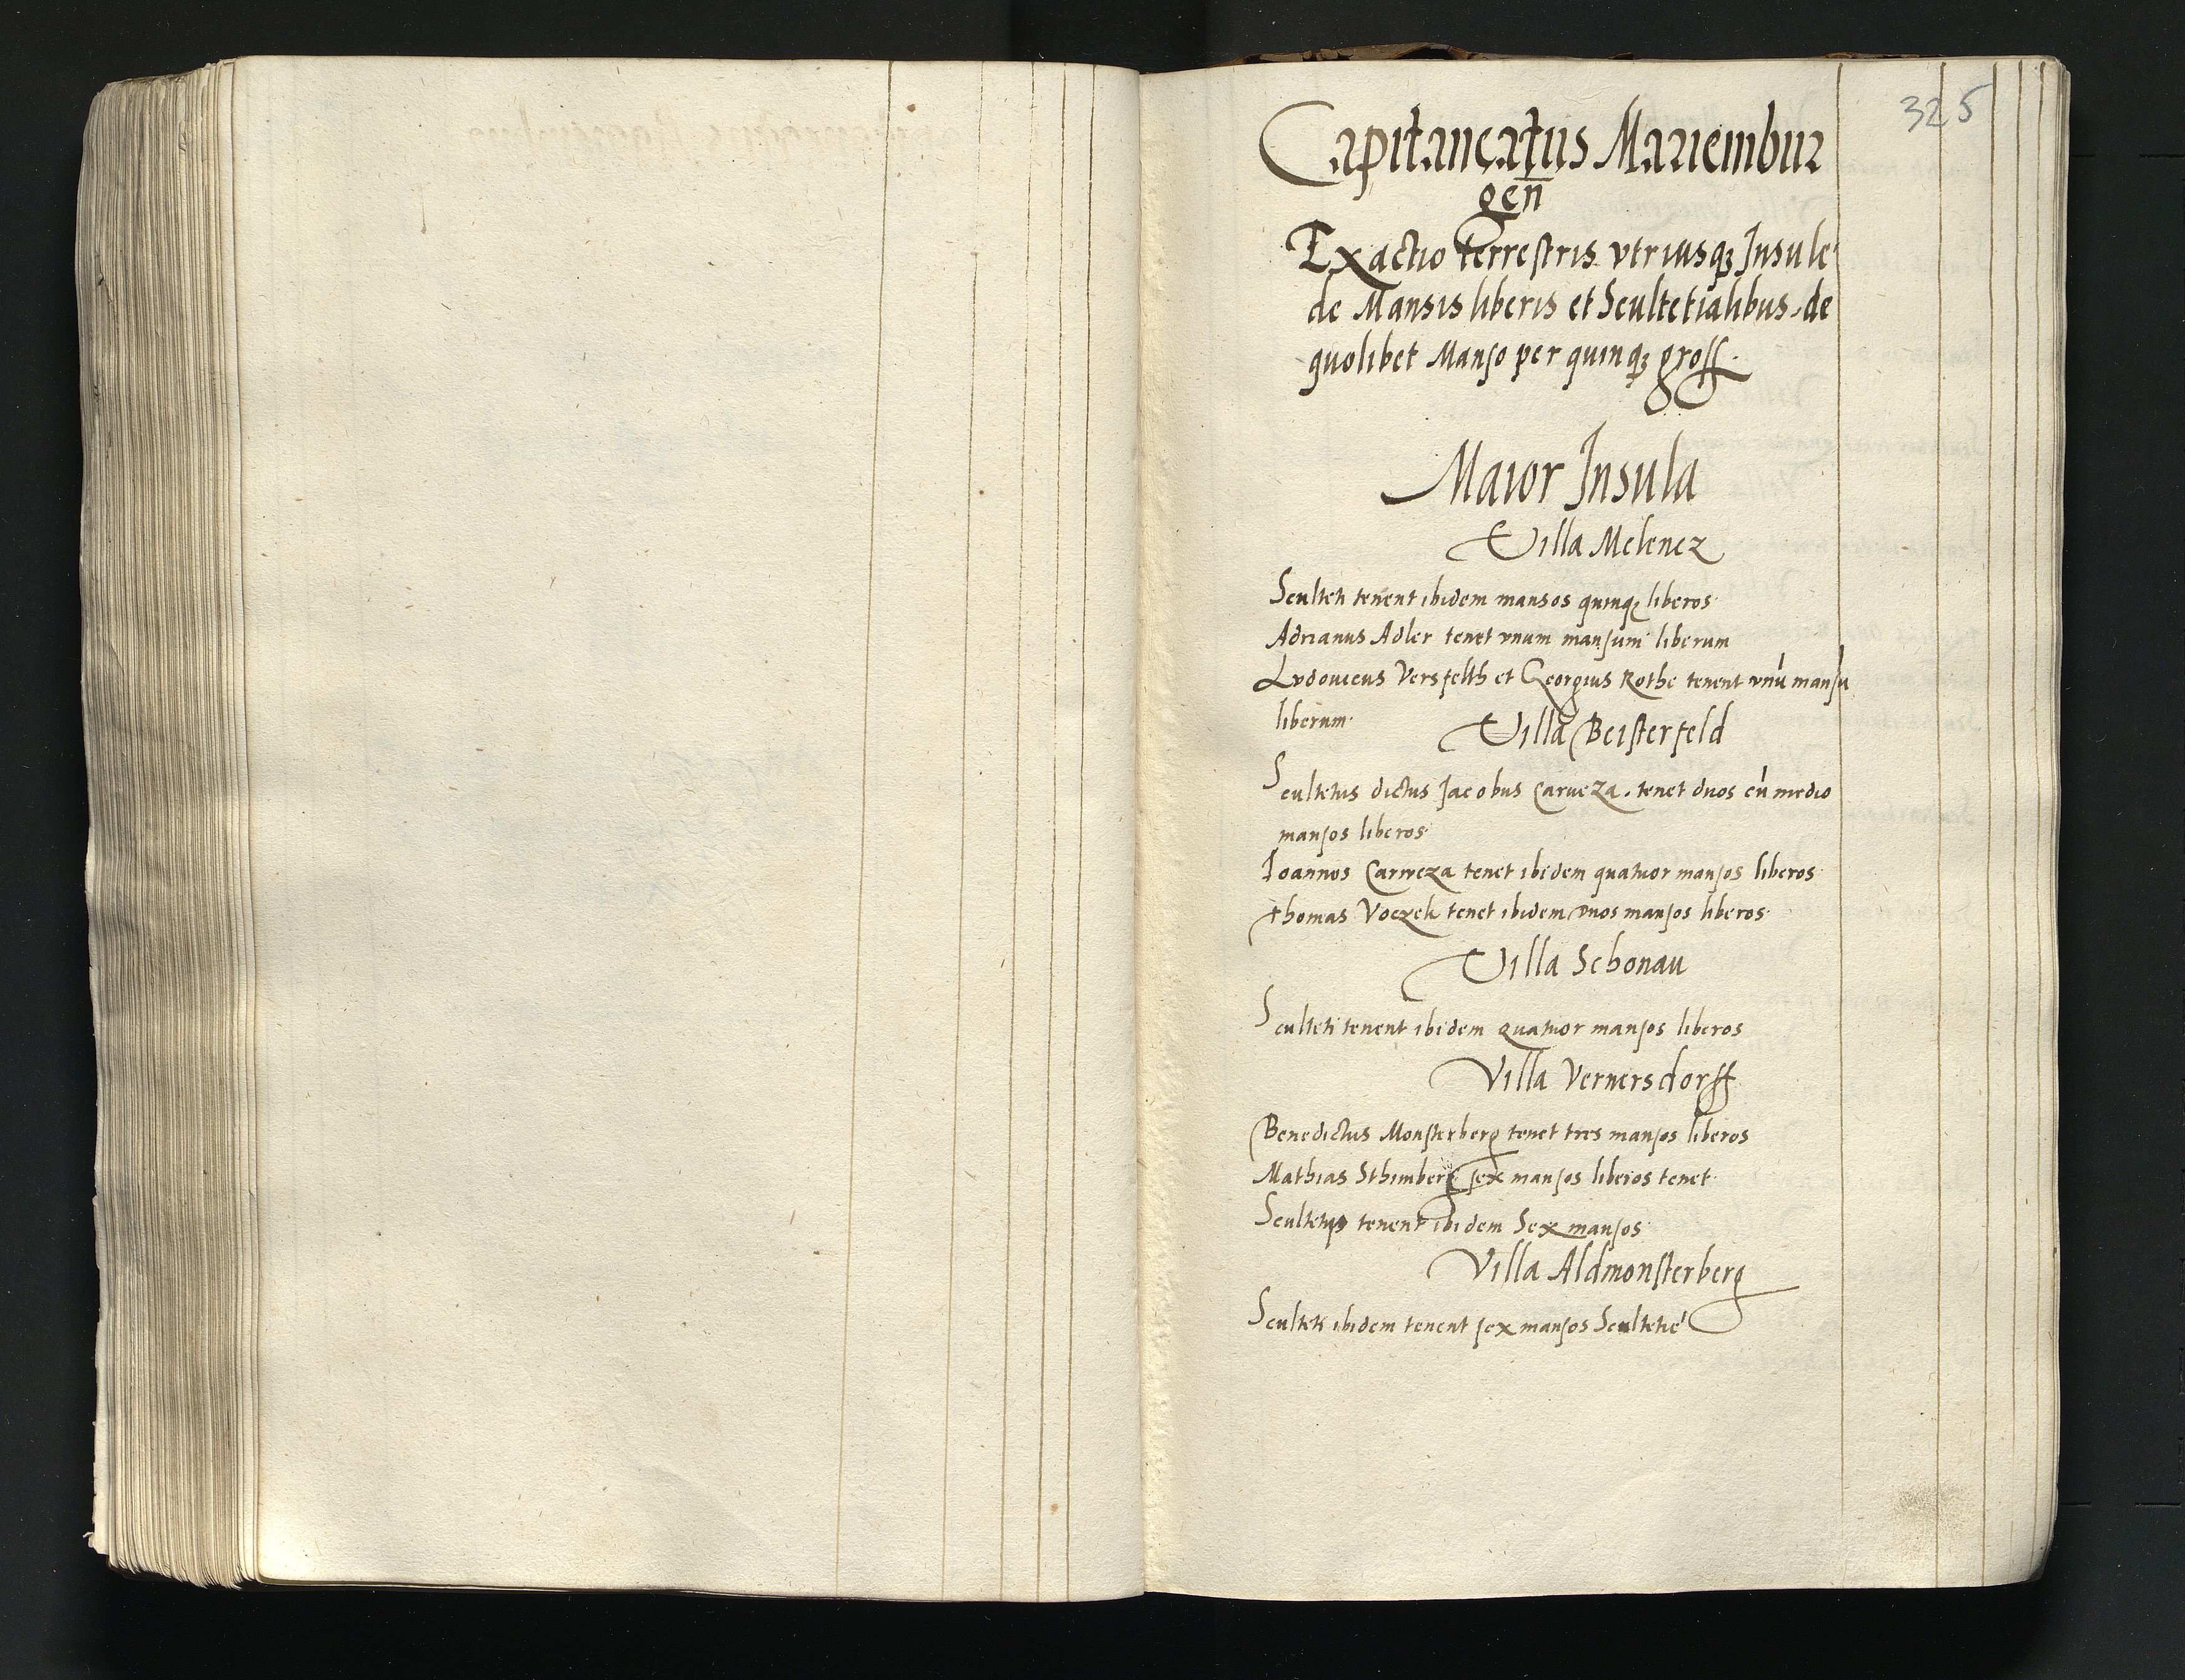 325
Capitaneatus Mariembur
gen̄
Exactio terrestris vtriusqꝫ Insule
de Mansis liberis et Scultetialibus, de
quolibet Manso per quinqꝫ gross.
Maior Insula
Villa Melencz
Sculteti tenent ibidem mansos quinqꝫ liberos
Adrianus Adler tenet vnum mansum liberum
Lvdouicus Versfelth et Georgius Rothe tenent vnū mansū
liberum
Villa Beisterfeld
Scultetus dictus Jacobus Carueza. tenet duos cū medio
mansos liberos
Ioannos Carweza tenet ibidem quatuor mansos liberos
Thomas Voczek tenet ibidem duos mansos liberos
Villa Schonau
Sculteti tenent ibidem quatuor mansos liberos
Villa Vernersdorff
Benedictus Monsterberg tenet tres mansos liberos
Mathias Sthimberg sex mansos liberos tenet
Scultetus tenent ibidem Sex mansos
Villa Aldmonsterberg
Sculteti ibidem tenent sex mansos Scultetie